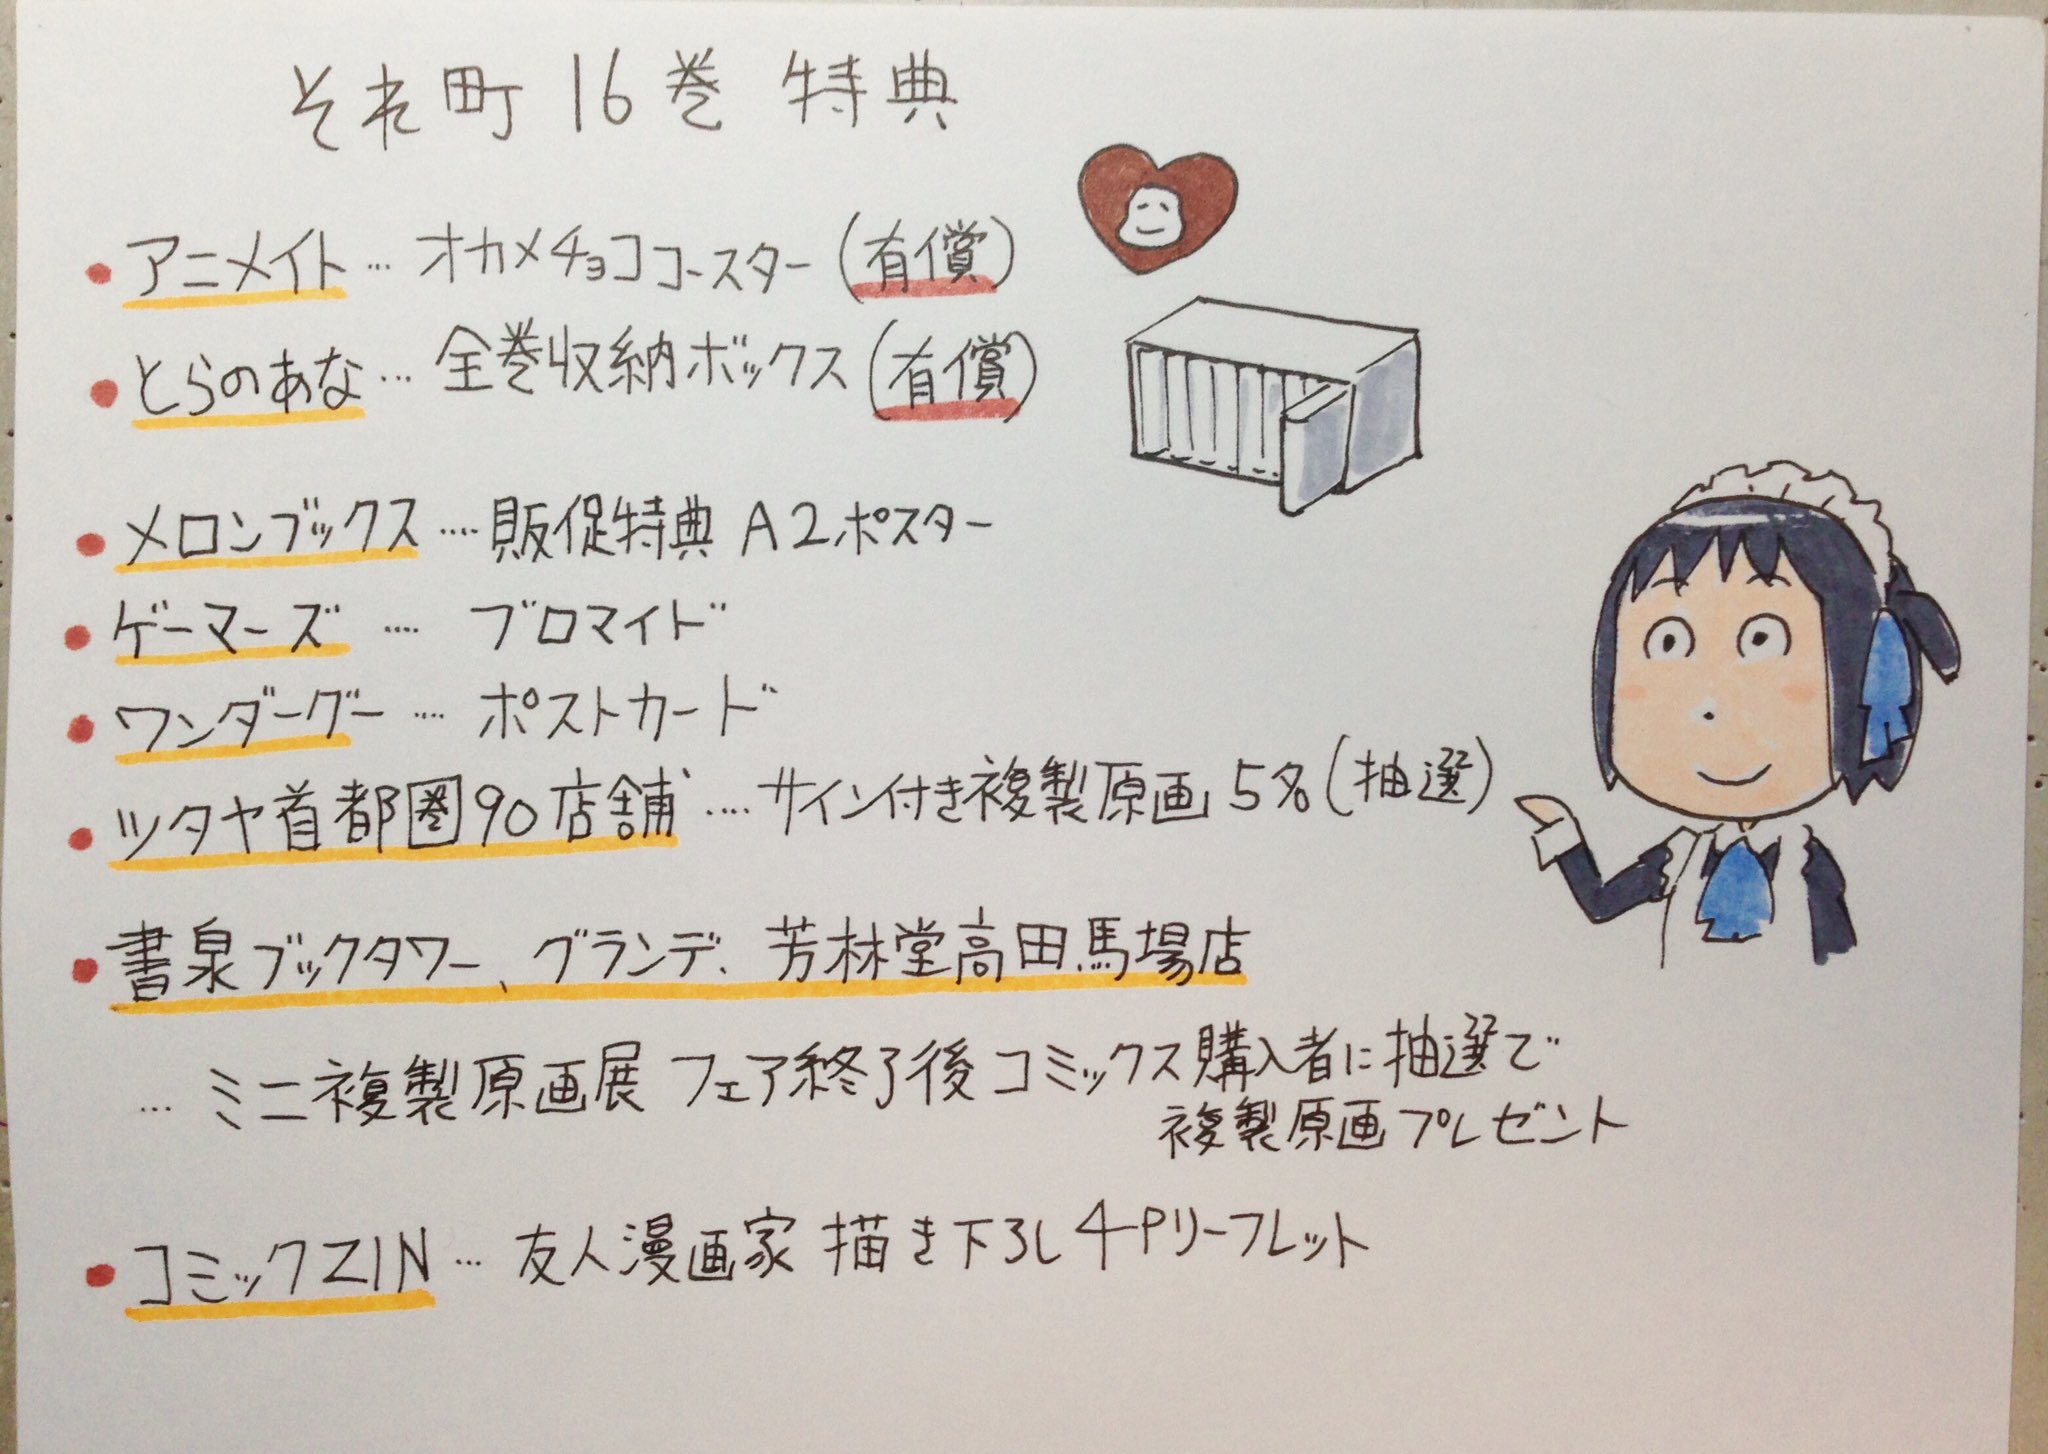 それ町 16巻 特典
・アニメイト… オカメチョココースター(有償)
・とらのあな… 全巻収納ボックス(有償)
・メロンブックス…. 販促特典 A2ポスター
・ゲーマーズ …. ブロマイド
・ワンダーグー …. ポストカード
・ツタヤ首都圏90店舗 …. サイン付き複製原画5名(抽選)
・書泉ブックタワー、グランデ、芳林堂高田馬場店
… ミニ複製原画展 フェア終了後 コミックス購入者に抽選で
複製原画プレゼント
・コミックZIN … 友人漫画家 描き下ろし4Pリーフレット